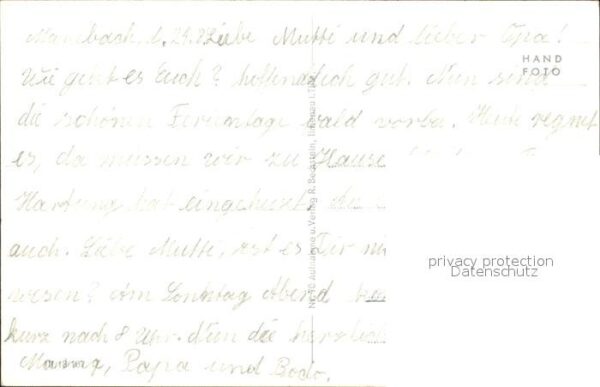 Manebach d. 29.8. Liebe Mutti und lieber Opa!
Wie geht es Euch? hoffendlich gut. Nun sind
die schönen Ferientage bald vorbei. Heute regnet
es, da müssen wir zu Hause
Hartung hat eingeheizt, die
auch. Liebe Mutti, ist es Dir
wesen? Am Sonntag Abend
kurz nach 8 Uhr. Nun die
Mama, Papa und Bodo.
HAND
FOTO
Aufnahme u. Verlag R. Bechstein, Ilmenau i. Thür
privacy protection
Datenschutz